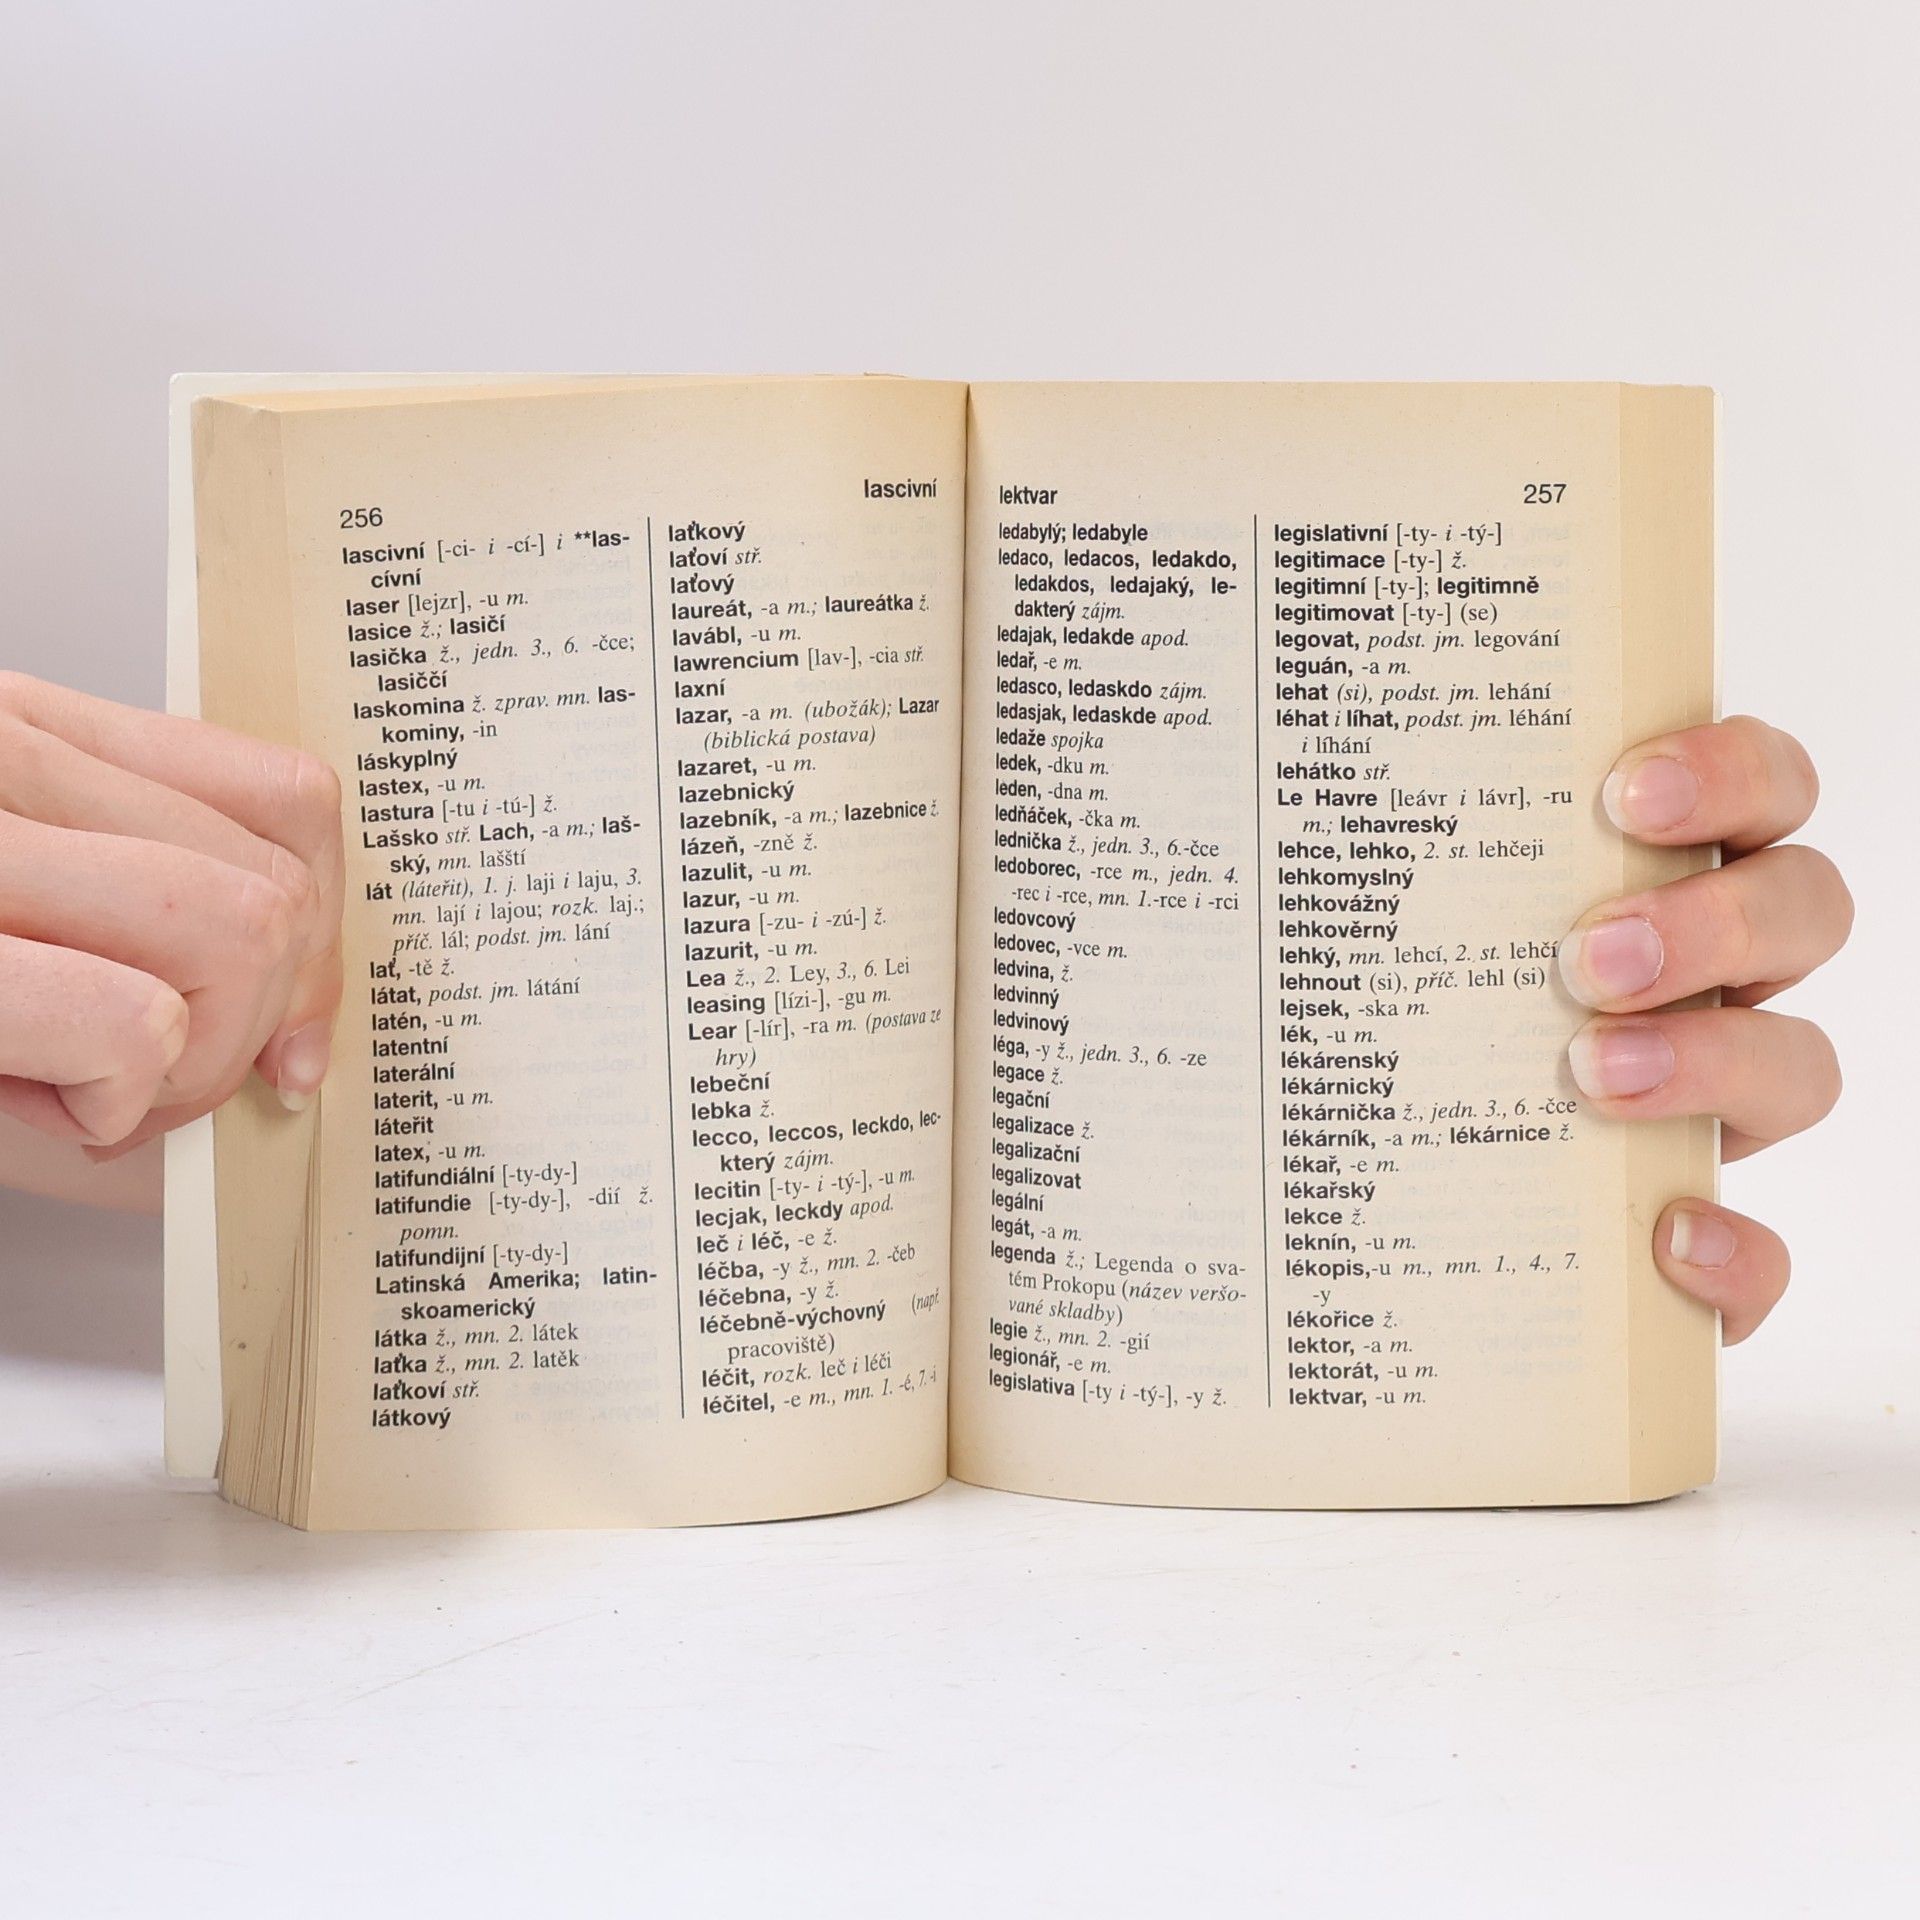 256
lascivní
lascivní [-ci- i -cí-] i **las-
cívní
laser [lejzr], -u m.
lasice ž.; lasičí
lasička ž., jedn. 3., 6. -čce;
lasiččí
laskomina ž. zprav. mn. las-
kominy, -in
láskyplný
lastex, -u m.
lastura [-tu i -tú-] ž.
Lašsko stř. Lach, -a m.; laš-
ský, mn. lašští
lát (láteřit), 1. j. laji i laju, 3.
mn. lají i lajou; rozk. laj.;
příč. lál; podst. jm. lání
lať, -tě ž.
látat, podst. jm. látání
latén, -u m.
latentní
laterální
laterit, -u m.
láteřit
latex, -u m.
latifundiální [-ty-dy-]
latifundie [-ty-dy-], -dií ž.
pomn.
latifundijní [-ty-dy-]
Latinská Amerika; latin-
skoamerický
látka ž., mn. 2. látek
laťka ž., mn. 2. latěk
laťkoví stř.
látkový
laťkový
laťoví stř.
laťový
laureát, -a m.; laureátka ž.
lavábl, -u m.
lawrencium [lav-], -cia stř.
laxní
lazar, -a m. (ubožák); Lazar
(biblická postava)
lazaret, -u m.
lazebnický
lazebník, -a m.; lazebnice ž.
lázeň, -zně ž.
lazulit, -u m.
lazur, -u m.
lazura [-zu- i -zú-] ž.
lazurit, -u m.
Lea ž., 2. Ley, 3., 6. Lei
leasing [lízi-], -gu m.
Lear [-lír], -ra m. (postava ze
hry)
lebeční
lebka ž.
lecco, leccos, leckdo, lec-
který zájm.
lecitin [-ty- i -tý-], -u m.
lecjak, leckdy apod.
leč i léč, -e ž.
léčba, -y ž., mn. 2. -čeb
léčebna, -y ž.
léčebně-výchovný (např.
pracoviště)
léčit, rozk. leč i léči
léčitel, -e m., mn. 1. -é, 7. -i
lektvar
257
ledabylý; ledabyle
ledaco, ledacos, ledakdo,
ledakdos, ledajaký, le-
dakterý zájm.
ledajak, ledakde apod.
ledař, -e m.
ledasco, ledaskdo zájm.
ledasjak, ledaskde apod.
ledaže spojka
ledek, -dku m.
leden, -dna m.
ledňáček, -čka m.
lednička ž., jedn. 3., 6.-čce
ledoborec, -rce m., jedn. 4.
-rec i -rce, mn. 1.-rce i -rci
ledovcový
ledovec, -vce m.
ledvina, ž.
ledvinný
ledvinový
léga, -y ž., jedn. 3., 6. -ze
legace ž.
legační
legalizace ž.
legalizační
legalizovat
legální
legát, -a m.
legenda ž.; Legenda o sva-
tém Prokopu (název veršo-
vané skladby)
legie ž., mn. 2. -gií
legionář, -e m.
legislativa [-ty i -tý-], -y ž.
legislativní [-ty- i -tý-]
legitimace [-ty-] ž.
legitimní [-ty-]; legitimně
legitimovat [-ty-] (se)
legovat, podst. jm. legování
leguán, -a m.
lehat (si), podst. jm. lehání
léhat i líhat, podst. jm. léhání
i líhání
lehátko stř.
Le Havre [leávr i lávr], -ru
m.; lehavreský
lehce, lehko, 2. st. lehčeji
lehkomyslný
lehkovážný
lehkověrný
lehký, mn. lehcí, 2. st. lehčí
lehnout (si), příč. lehl (si)
lejsek, -ska m.
lék, -u m.
lékárenský
lékárnický
lékárnička ž., jedn. 3., 6. -čce
lékárník, -a m.; lékárnice ž.
lékař, -e m.
lékařský
lekce ž.
leknín, -u m.
lékopis,-u m., mn. 1., 4., 7.
-y
lékořice ž.
lektor, -a m.
lektorát, -u m.
lektvar, -u m.